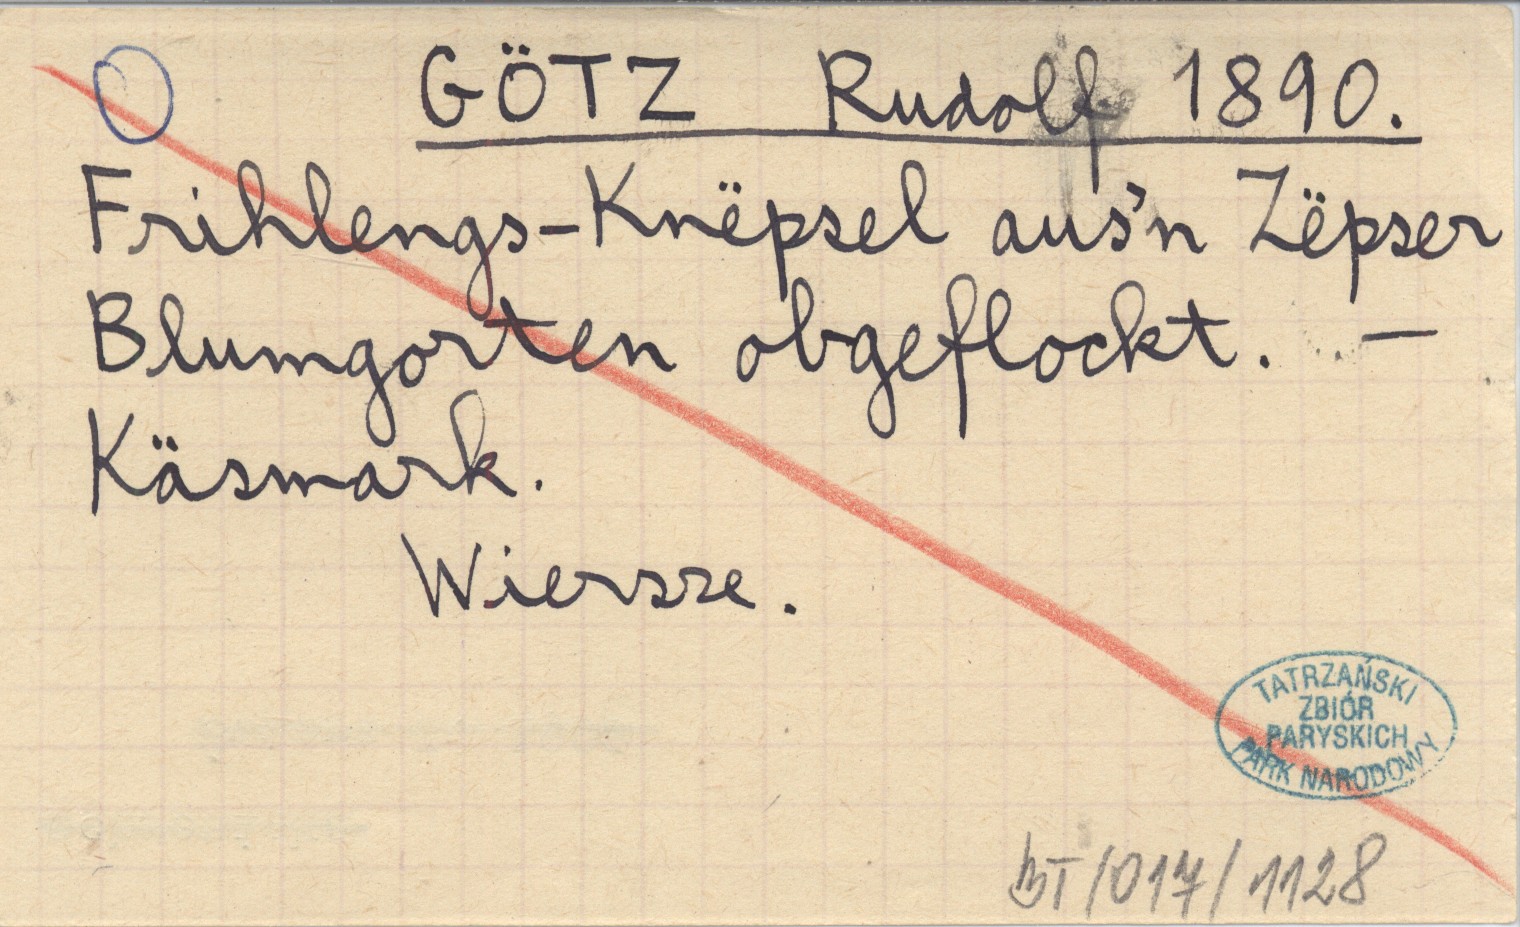 GÖTZ Rudolf 1890.
Frihlengs-Knëpsel aus'n Zëpser
Blumgorten obgeflockt. —
Käsmark.
Wiersze.
TATRZAŃSKI
ZBIÓR
PARYSKICH
PARK NARODOWY
BT/017/1128